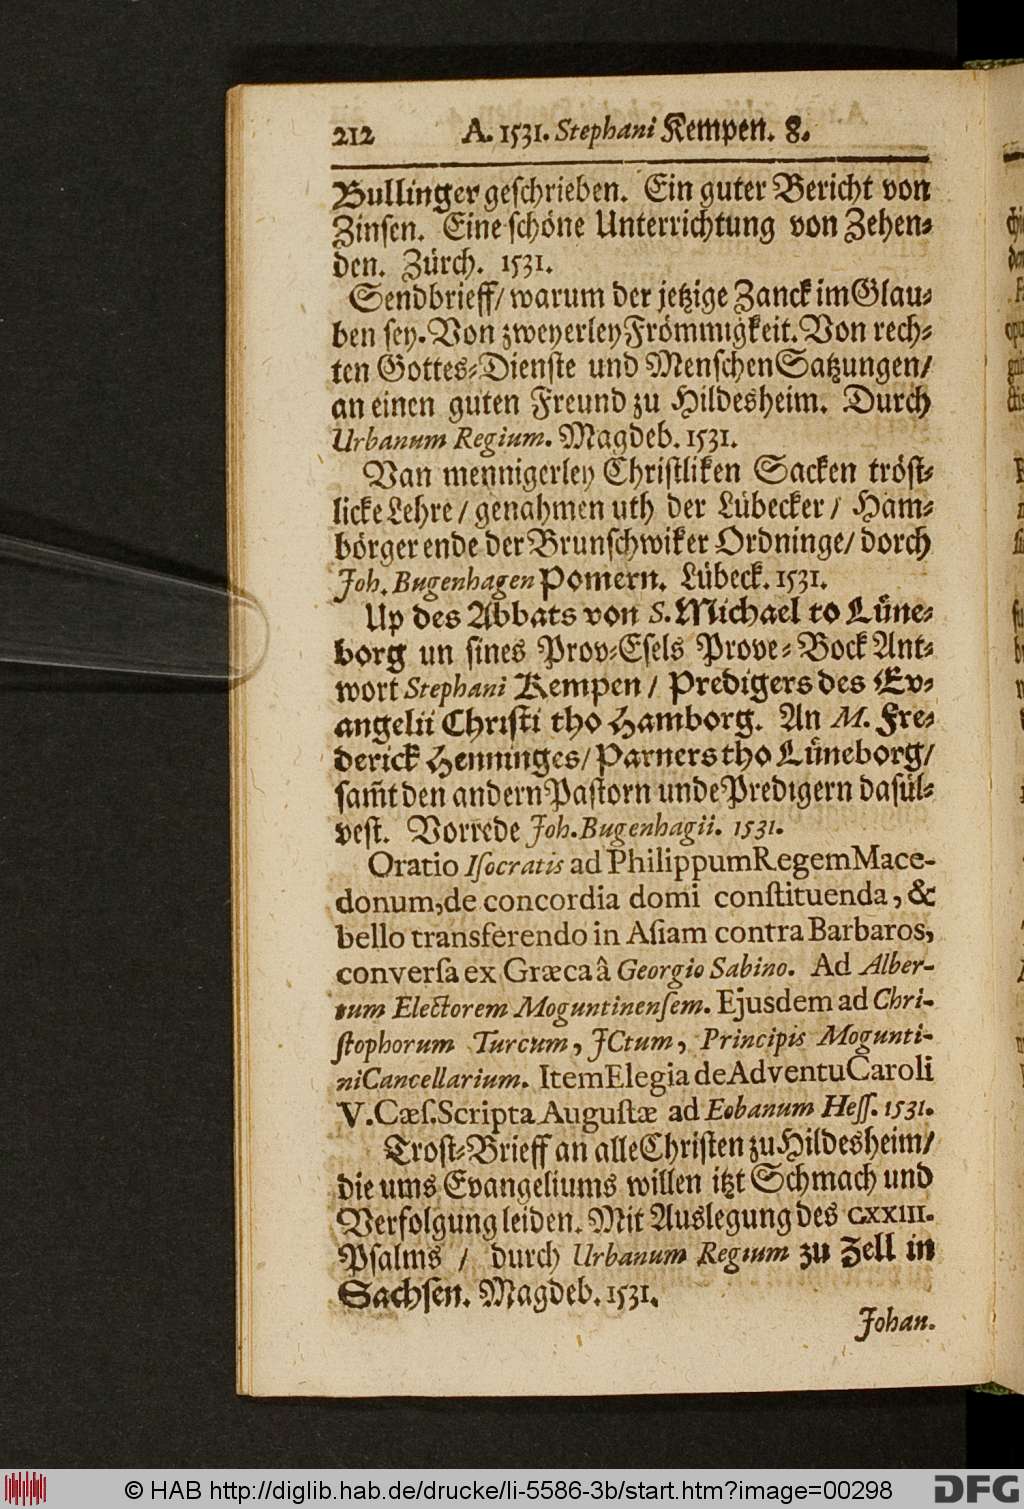 212 A. 1531. Stephani Kempen. 8.
Bullinger geschrieben. Ein guter Bericht von
Zinsen. Eine schöne Unterrichtung von Zehen-
den. Zürch. 1531.
Sendbrieff/ warum der jetzige Zanck im Glau-
ben sey. Von zweyerley Frömmigkeit. Von rech-
ten Gottes-Dienste und Menschen Satzungen/
an einen guten Freund zu Hildesheim. Durch
Urbanum Regium. Magdeb. 1531.
Van mennigerley Christliken Sacken tröst-
licke Lehre / genahmen uth der Lübecker / Ham-
börger ende der Brunschwiker Ordninge/ dorch
Joh. Bugenhagen Pomern. Lübeck. 1531.
Up des Abbats von S. Michael to Lüne-
borg un sines Prov-Esels Prove-Bock Ant-
wort Stephani Kempen / Predigers des Ev-
angelii Christi tho Hamborg. An M. Fre-
derick Henninges/ Parners tho Lüneborg/
sam̃t den andern Pastorn unde Predigern dasül-
vest. Vorrede Joh. Bugenhagii. 1531.
Oratio Iſocratis ad Philippum Regem Mace-
donum, de concordia domi conſtituenda, &
bello transferendo in Aſiam contra Barbaros,
converſa ex Græca â Georgio Sabino. Ad Alber-
tum Electorem Moguntinenſem. Ejusdem ad Chri-
ſtophorum Turcum, JCtum, Principis Mogunti-
ni Cancellarium. Item Elegia de Adventu Caroli
V. Cæſ. Scripta Auguſtæ ad Eobanum Heſſ. 1531.
Trost-Brieff an alle Christen zu Hildesheim/
die ums Evangeliums willen itzt Schmach und
Verfolgung leiden. Mit Auslegung des CXXIII.
Psalms / durch Urbanum Regium zu Zell in
Sachsen. Magdeb. 1531.
Johan.
© HAB http://diglib.hab.de/drucke/li-5586-3b/start.htm?image=00298
DFG